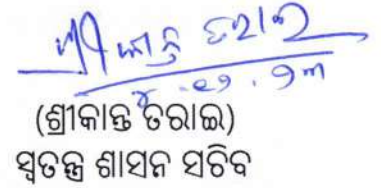 ଶ୍ରୀକାନ୍ତି ତରାଇ
୪.୧୨.୨୩
(ଶ୍ରୀକାନ୍ତ ତରାଇ)
ସ୍ୱତନ୍ତ୍ର ଶାସନ ସଚିବ